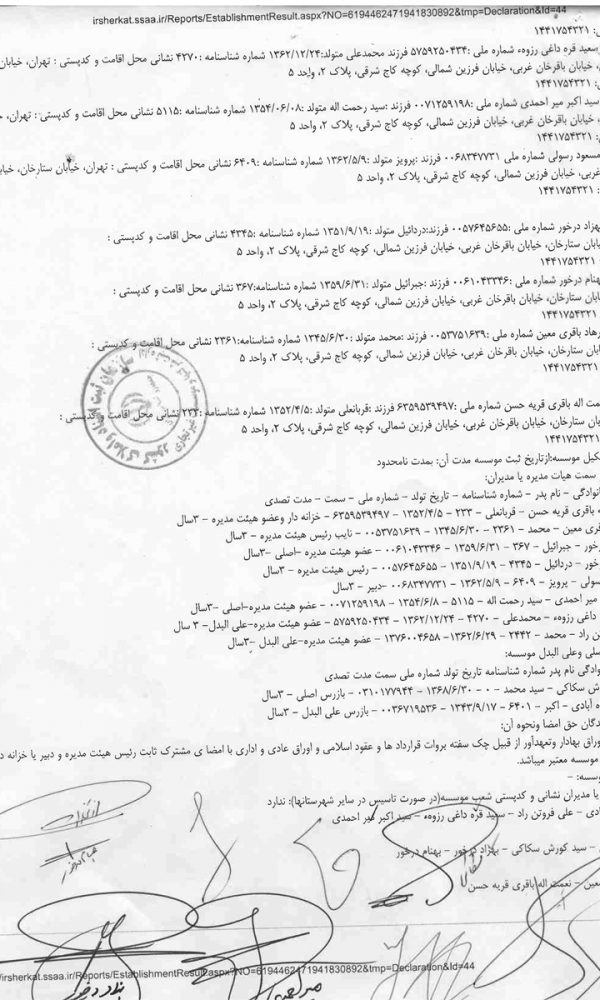 irsherkat.ssaa.ir/Reports/EstablishmentResult.aspx?NO=6194462471941830892&tmp=Declaration&Id=44
: ۱۴۴۱۷۵۴۳۲۱
سعید قره داغی رزوه، شماره ملی :۵۷۵۹۲۵۰۴۳۴ فرزند محمدعلی متولد:۱۳۶۲/۱۲/۲۴ شماره شناسنامه :۴۲۷۰ نشانی محل اقامت و کدپستی : تهران، خیابان
، خیابان باقرخان غربی، خیابان فرزین شمالی، کوچه کاج شرقی، پلاک ۲، واحد ۵
: ۱۴۴۱۷۵۴۳۲۱
سید اکبر میر احمدی شماره ملی :۰۰۷۱۲۵۹۱۹۸ فرزند :سید رحمت اله متولد :۱۳۵۴/۰۶/۰۸ شماره شناسنامه :۵۱۱۵ نشانی محل اقامت و کدپستی : تهران،
، خیابان باقرخان غربی، خیابان فرزین شمالی، کوچه کاج شرقی، پلاک ۲، واحد ۵
: ۱۴۴۱۷۵۴۳۲۱
مسعود رسولی شماره ملی :۰۰۶۸۳۴۷۷۳۱ فرزند :پرویز متولد :۱۳۶۲/۵/۹ شماره شناسنامه :۶۴۰۹ نشانی محل اقامت و کدپستی : تهران، خیابان ستارخان،
غربی، خیابان فرزین شمالی، کوچه کاج شرقی، پلاک ۲، واحد ۵
: ۱۴۴۱۷۵۴۳۲۱
بهزاد درخور شماره ملی :۰۰۵۷۶۴۵۶۵۵ فرزند:دردائیل متولد :۱۳۵۱/۹/۱۹ شماره شناسنامه :۴۳۴۵ نشانی محل اقامت و کدپستی :
ستارخان، خیابان باقرخان غربی، خیابان فرزین شمالی، کوچه کاج شرقی، پلاک ۲، واحد ۵
۱۴۴۱۷۵۴۳۲۱
بهنام درخور شماره ملی :۰۰۶۱۰۴۳۳۴۶ فرزند :جبرائیل متولد :۱۳۵۹/۶/۳۱ شماره شناسنامه:۳۶۷ نشانی محل اقامت و کدپستی :
ستارخان، خیابان باقرخان غربی، خیابان فرزین شمالی، کوچه کاج شرقی، پلاک ۲، واحد ۵
۱۴۴۱۷۵۴۳۲۱
باقری معین شماره ملی :۰۰۵۳۷۵۱۶۳۹ فرزند :محمد متولد :۱۳۴۵/۶/۳۰ شماره شناسنامه:۲۳۶۱ نشانی محل اقامت و کدپستی :
ستارخان، خیابان باقرخان غربی، خیابان فرزین شمالی، کوچه کاج شرقی، پلاک ۲، واحد ۵
۱۴۴۱۷۵۴۳۲۱
اله باقری قریه حسن شماره ملی :۶۳۵۹۵۳۹۴۹۷ فرزند :قربانعلی متولد :۱۳۵۲/۴/۵ شماره شناسنامه نشانی محل اقامت و کدپستی :
ستارخان، خیابان باقرخان غربی، خیابان فرزین شمالی، کوچه کاج شرقی، پلاک ۲، واحد ۵
۱۴۴۱۷۵۴۳۲۱
موسسه:ازتاریخ ثبت موسسه مدت آن: بمدت نامحدود
سمت هیات مدیره یا مدیران:
نام پدر – شماره شناسنامه – تاریخ تولد – شماره ملی – سمت – مدت تصدی
باقری قریه حسن – قربانعلی – ۲۳۳ – ۱۳۵۲/۴/۵ – ۶۳۵۹۵۳۹۴۹۷ – خزانه دار وعضو هیئت مدیره – ۳سال
معین – محمد – ۲۳۶۱ – ۱۳۴۵/۶/۳۰ – ۰۰۵۳۷۵۱۶۳۹ – نایب رئیس هیئت مدیره – ۳سال
– جبرائیل – ۳۶۷ – ۱۳۵۹/۶/۳۱ – ۰۰۶۱۰۴۳۳۴۶ – عضو هیئت مدیره –اصلی –۳سال
– دردائیل – ۴۳۴۵ – ۱۳۵۱/۹/۱۹ – ۰۰۵۷۶۴۵۶۵۵ – رئیس هیئت مدیره – ۳سال
– پرویز – ۶۴۰۹ – ۱۳۶۲/۵/۹ – ۰۰۶۸۳۴۷۷۳۱ –دبیر – ۳سال
میر احمدی – سید رحمت اله – ۵۱۱۵ – ۱۳۵۴/۶/۸ – ۰۰۷۱۲۵۹۱۹۸ – عضو هیئت مدیره–اصلی –۳سال
داغی رزوه – محمدعلی – ۴۲۷۰ – ۱۳۶۲/۱۲/۲۴ – ۵۷۵۹۲۵۰۴۳۴ – عضو هیئت مدیره–علی البدل– ۳ سال
راد – محمد – ۲۴۴۲ –۱۳۶۲/۶/۲۹ – ۱۳۷۶۰۰۴۶۵۸ – عضو هیئت مدیره–علی البدل –۳سال
وعلی البدل موسسه:
نام پدر شماره شناسنامه تاریخ تولد شماره ملی سمت مدت تصدی
سکاکی – سید محمد – ۰ – ۱۳۶۸/۶/۳۰ – ۰۳۱۰۱۷۷۹۴۴ – بازرس اصلی – ۳سال
آبادی – اکبر – ۶۴۰۱ – ۱۳۴۳/۹/۱۷ – ۰۰۳۶۷۱۹۵۳۶ – بازرس علی البدل – ۳سال
حق امضا ونحوه آن:
بهادار وتعهدآور از قبیل چک سفته بروات قرارداد ها و عقود اسلامی و اوراق عادی و اداری با امضا ی مشترک ثابت رئیس هیئت مدیره و دبیر یا خزانه
موسسه معتبر میباشد.
: –
یا مدیران نشانی و کدپستی شعب موسسه(در صورت تاسیس در سایر شهرستانها): ندارد
– علی فروتن راد – سعید قره داغی رزوه – سید اکبر میر احمدی
– سید کورش سکاکی – بهزاد درخور – بهنام درخور
معین – نعمت اله باقری قریه حسن
irsherkat.ssaa.ir/Reports/EstablishmentResult.aspx?NO=6194462471941830892&tmp=Declaration&Id=44